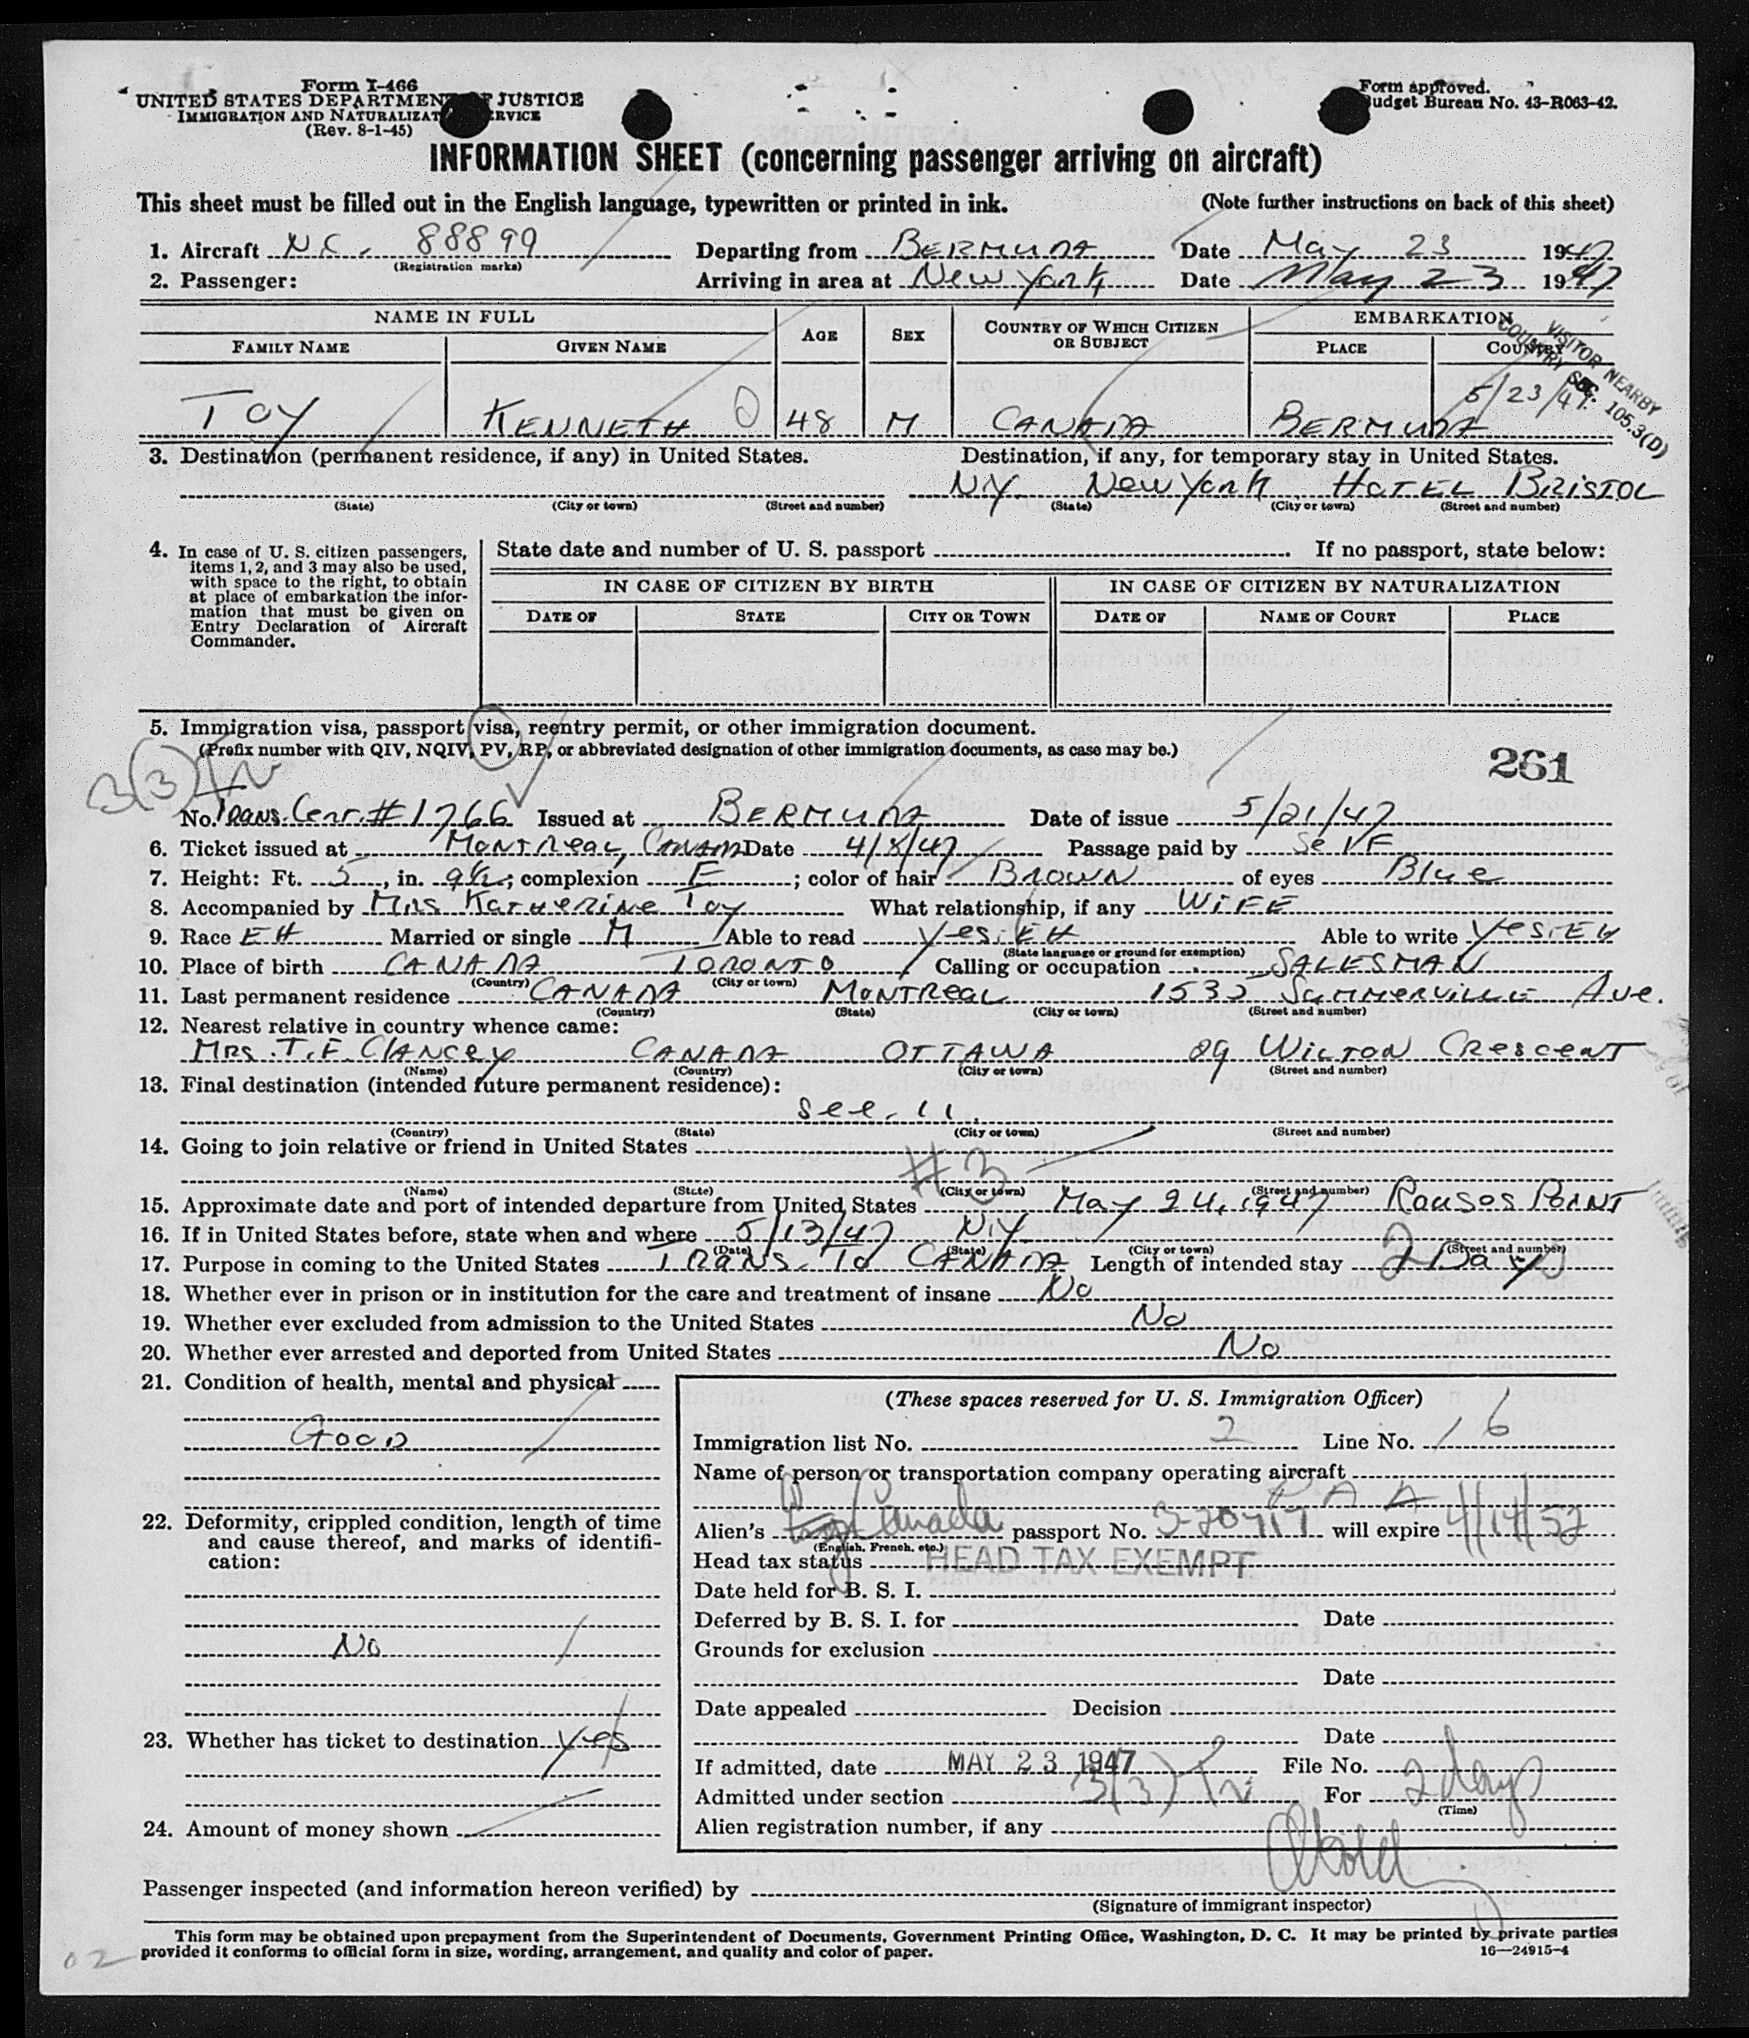 Form I-466
UNITED STATES DEPARTMENT OF JUSTICE
IMMIGRATION AND NATURALIZATION SERVICE
(Rev. 8-1-45)
Form approved.
Budget Bureau No. 43-R063-42.
INFORMATION SHEET (concerning passenger arriving on aircraft)
This sheet must be filled out in the English language, typewritten or printed in ink. (Note further instructions on back of this sheet)
1. Aircraft NC. 88899 Departing from BERMUDA Date May 23 1947
(Registration marks)
2. Passenger: Arriving in area at New York Date May 23 1947
NAME IN FULL AGE SEX COUNTRY OF WHICH CITIZEN OR SUBJECT EMBARKATION
FAMILY NAME GIVEN NAME PLACE COUNTRY
VISITOR NEARBY
COUNTRY SEC. 105.3(D)
5/23/47
TOY KENNETH O 48 M CANADA BERMUDA
3. Destination (permanent residence, if any) in United States. Destination, if any, for temporary stay in United States.
NY New York HOTEL BRISTOL
(State) (City or town) (Street and number) (State) (City or town) (Street and number)
4. In case of U. S. citizen passengers, items 1, 2, and 3 may also be used, with space to the right, to obtain at place of embarkation the information that must be given on Entry Declaration of Aircraft Commander.
State date and number of U. S. passport If no passport, state below:
IN CASE OF CITIZEN BY BIRTH IN CASE OF CITIZEN BY NATURALIZATION
DATE OF STATE CITY OR TOWN DATE OF NAME OF COURT PLACE
5. Immigration visa, passport visa, reentry permit, or other immigration document.
(Prefix number with QIV, NQIV, PV, RP, or abbreviated designation of other immigration documents, as case may be.)
261
3(3)
No. Trans. Cert. #1766 Issued at BERMUDA Date of issue 5/21/47
6. Ticket issued at MONTREAL, CANADA Date 4/8/47 Passage paid by SELF
7. Height: Ft. 5, in. 9½; complexion F; color of hair BROWN of eyes Blue
8. Accompanied by MRS KATHERINE TOY What relationship, if any WIFE
9. Race EH Married or single M Able to read Yes. EH Able to write Yes. EH
(State language or ground for exemption)
10. Place of birth CANADA TORONTO Calling or occupation SALESMAN
(Country) (City or town)
11. Last permanent residence CANADA MONTREAL 1535 SUMMERVILLE Ave.
(Country) (State) (City or town) (Street and number)
12. Nearest relative in country whence came:
MRS. T. F. CLANCEY CANADA OTTAWA 89 WILTON CRESCENT
(Name) (Country) (City or town) (Street and number)
13. Final destination (intended future permanent residence):
See 11.
(Country) (State) (City or town) (Street and number)
14. Going to join relative or friend in United States
#3
(Name) (State) (City or town) (Street and number)
15. Approximate date and port of intended departure from United States May 24, 1947 ROUSES POINT
16. If in United States before, state when and where 5/13/47 NY
(Date) (State) (City or town) (Street and number)
17. Purpose in coming to the United States TRANS. TO CANADA Length of intended stay 2 Days
18. Whether ever in prison or in institution for the care and treatment of insane No
19. Whether ever excluded from admission to the United States No
20. Whether ever arrested and deported from United States No
21. Condition of health, mental and physical
GOOD
22. Deformity, crippled condition, length of time and cause thereof, and marks of identification:
No
23. Whether has ticket to destination Yes
24. Amount of money shown
(These spaces reserved for U. S. Immigration Officer)
Immigration list No. 2 Line No. 16
Name of person or transportation company operating aircraft
P A A
Alien's Canada passport No. 3-20717 will expire 4/14/52
(English, French, etc.)
Head tax status HEAD TAX EXEMPT
Date held for B. S. I.
Deferred by B. S. I. for Date
Grounds for exclusion
Date
Date appealed Decision
Date
If admitted, date MAY 23 1947 File No.
Admitted under section 3(3) For 2 days
(Time)
Alien registration number, if any
Passenger inspected (and information hereon verified) by
(Signature of immigrant inspector)
This form may be obtained upon prepayment from the Superintendent of Documents, Government Printing Office, Washington, D. C. It may be printed by private parties
provided it conforms to official form in size, wording, arrangement, and quality and color of paper. 16—24915-4
02